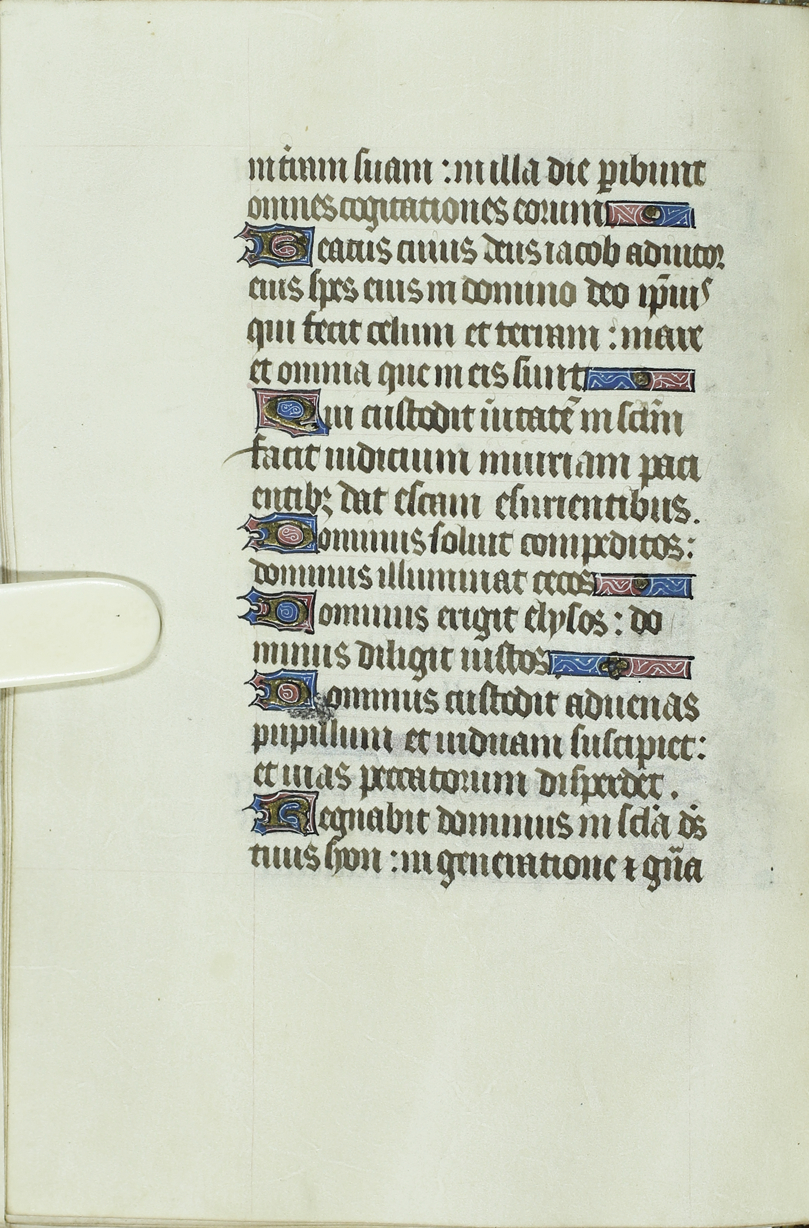 in t̄rām suam : in illa die ꝑibunt
omnes cogitationes eorum
Beatus cuius deus iacob adiutor
eius spes eius in domino deo ip̄ius
qui fecit celum et terram : mare
et omnia que in eis sunt
Qui custodit ūitatē in sclm̄
facit iudicium iniuriam paci
entibꝫ dat escam esurientibus.
Dominus soluit compeditos :
dominus illuminat cecos
Dominus erigit elysos : do
minus diligit iustos
Dominus custodit aduenas
pupillum et uiduam suscipiet :
et uias peccatorum disperdet .
Regnabit dominus in scl̄a ds̄
tuus syon : in generatione ⁊ gn̄a